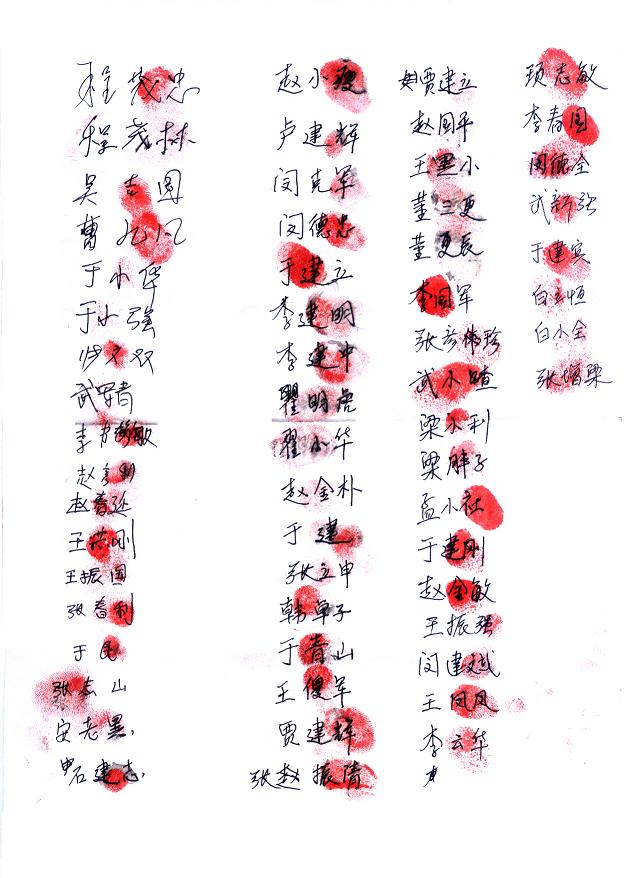 程茂忠
程茂林
吴志国
曹九江
于小华
于小强
武军青
李方敏
赵春还
王洪刚
王振国
张春利
于民
张志山
安老黑
石建志
赵小瘦
卢建辉
闵克军
闵德忠
于建立
李建明
李建中
瞿明虎
翟小华
赵金朴
于建
张立申
韩卓子
于青山
王俊军
贾建辉
张赵振清
贾建立
赵国平
王黑小
董三更
董更辰
李国军
张彦梅珍
武小喳
梁小利
梁胖子
孟小社
于建刚
赵金敏
王振强
闵建斌
王凤凤
李云华
顼志敏
李春国
闵德全
武新强
于建宾
白志恒
白小全
张增栗